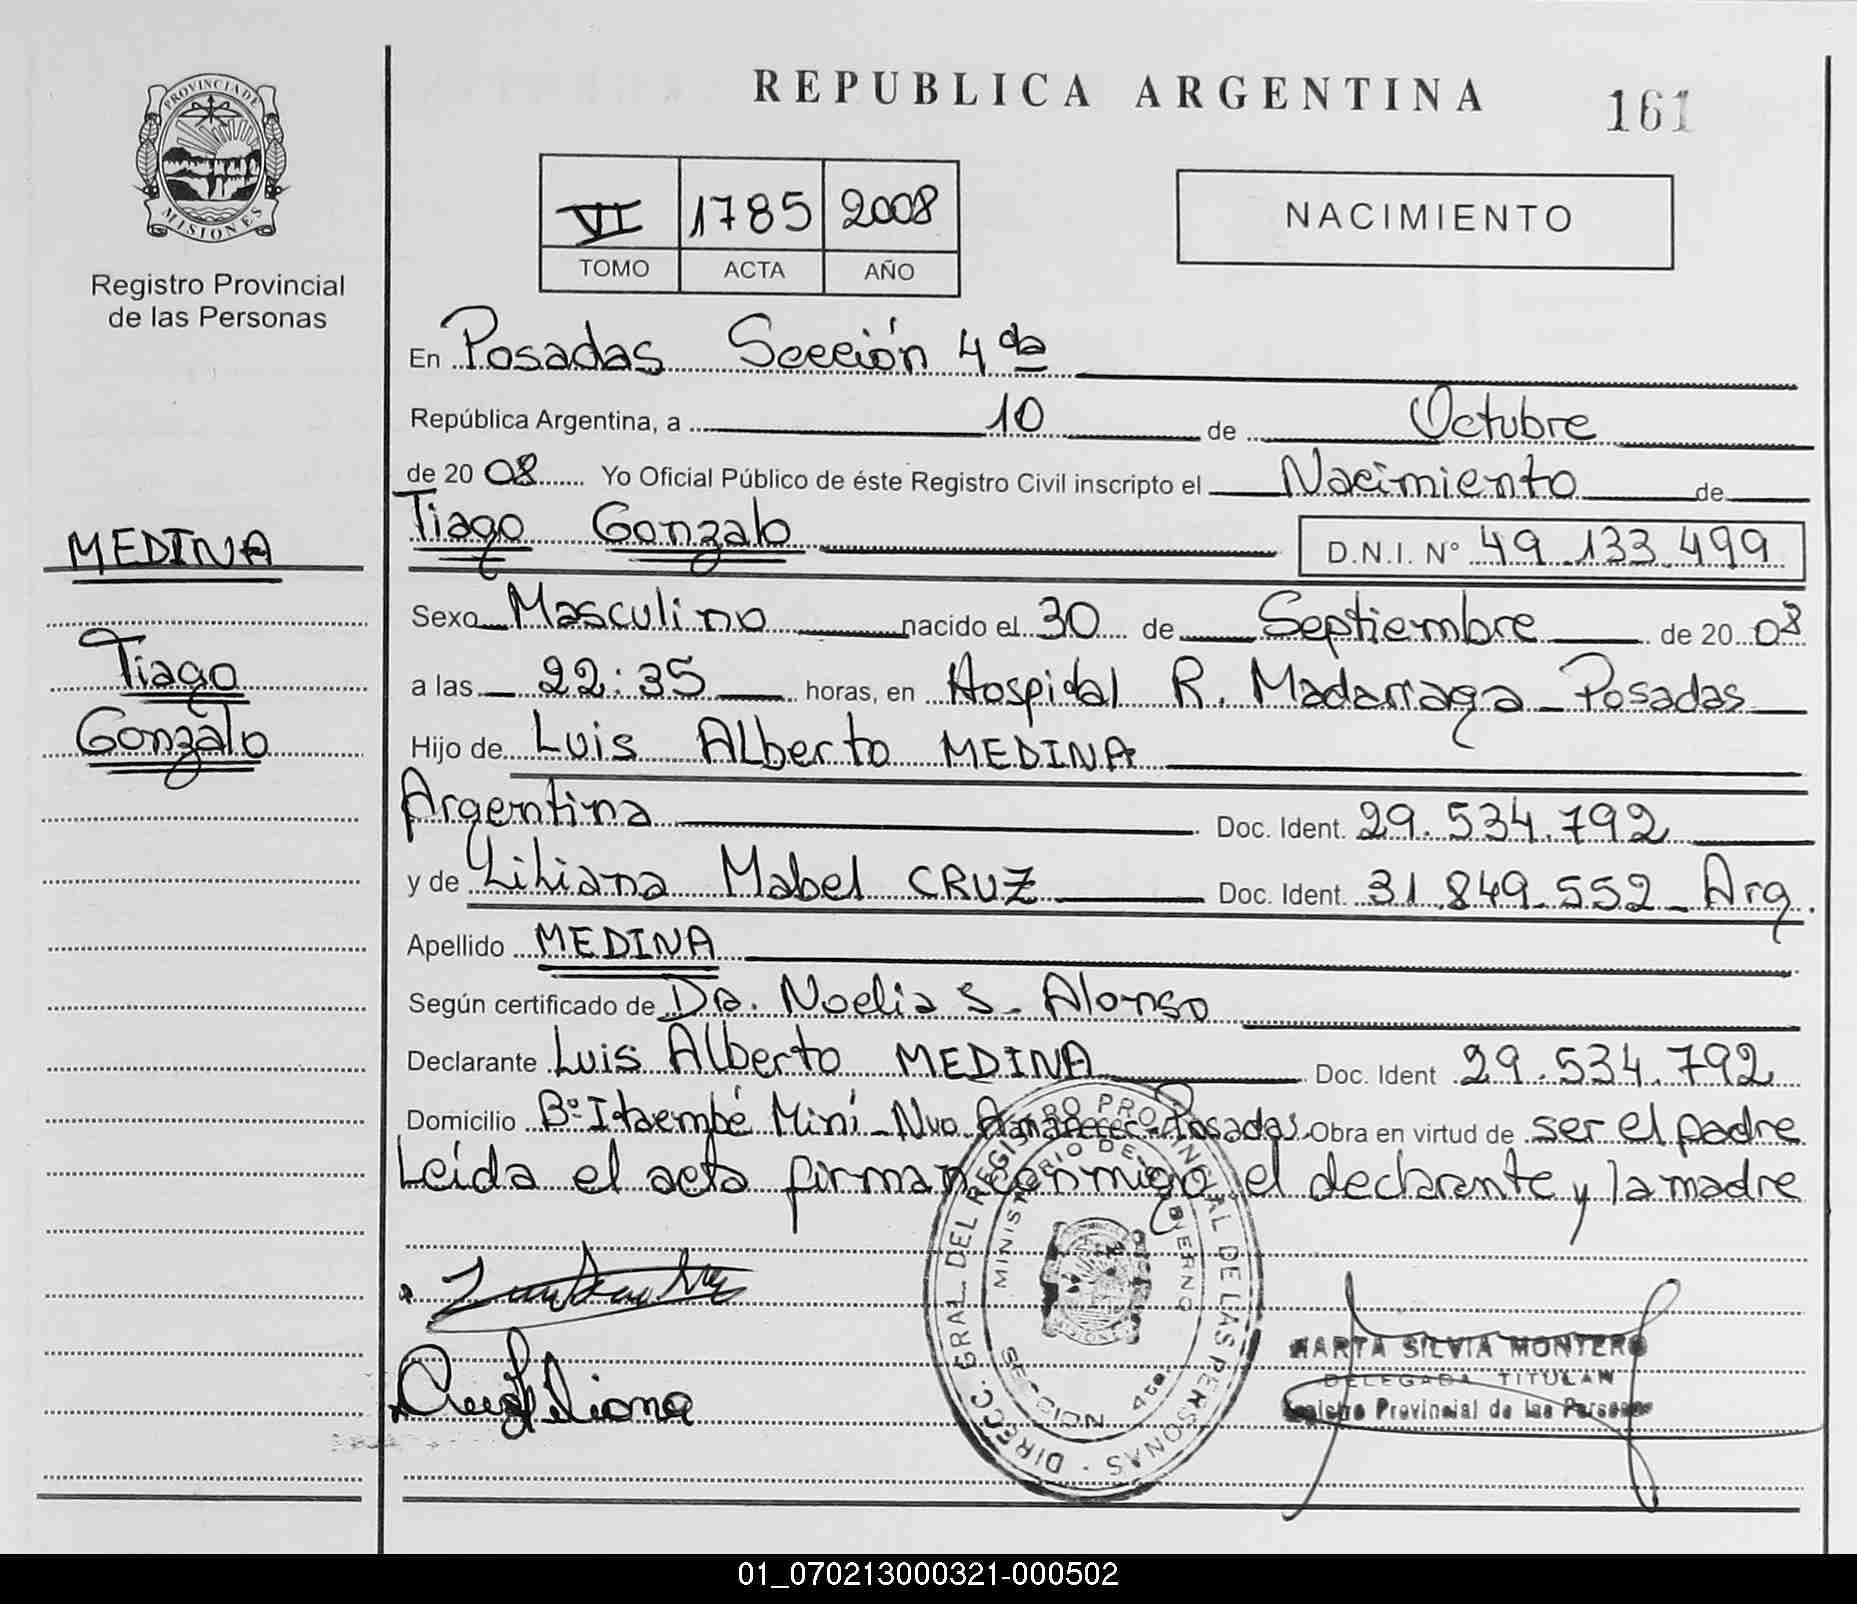 REPUBLICA ARGENTINA
161
PROVINCIA DE MISIONES
Registro Provincial
de las Personas
VI 1785 2008
TOMO ACTA AÑO
NACIMIENTO
En Posadas Sección 4 da
República Argentina, a 10 de Octubre
de 20 08 Yo Oficial Público de éste Registro Civil inscripto el Nacimiento de
Tiago Gonzalo D.N.I. Nº 49.133.499
MEDINA
Tiago
Gonzalo
Sexo Masculino nacido el 30 de Septiembre de 20 08
a las 22:35 horas, en Hospital R. Madarriaga - Posadas
Hijo de Luis Alberto MEDINA
Argentina Doc. Ident. 29.534.792
y de Liliana Mabel CRUZ Doc. Ident. 31.849.552 - Arg.
Apellido MEDINA
Según certificado de Dra. Noelia S. Alonso
Declarante Luis Alberto MEDINA Doc. Ident 29.534.792
Domicilio Bº Itaembé Miní - Nvo Amanecer - Posadas Obra en virtud de ser el padre
Leída el acta firman conmigo el declarante y la madre
DIRECC. GRAL. DEL REGISTRO PROVINCIAL DE LAS PERSONAS
MINISTERIO DE GOBIERNO
SECCION 4ta.
MARTA SILVIA MONTERO
DELEGADA TITULAR
Registro Provincial de las Personas
Liliana
01_070213000321-000502